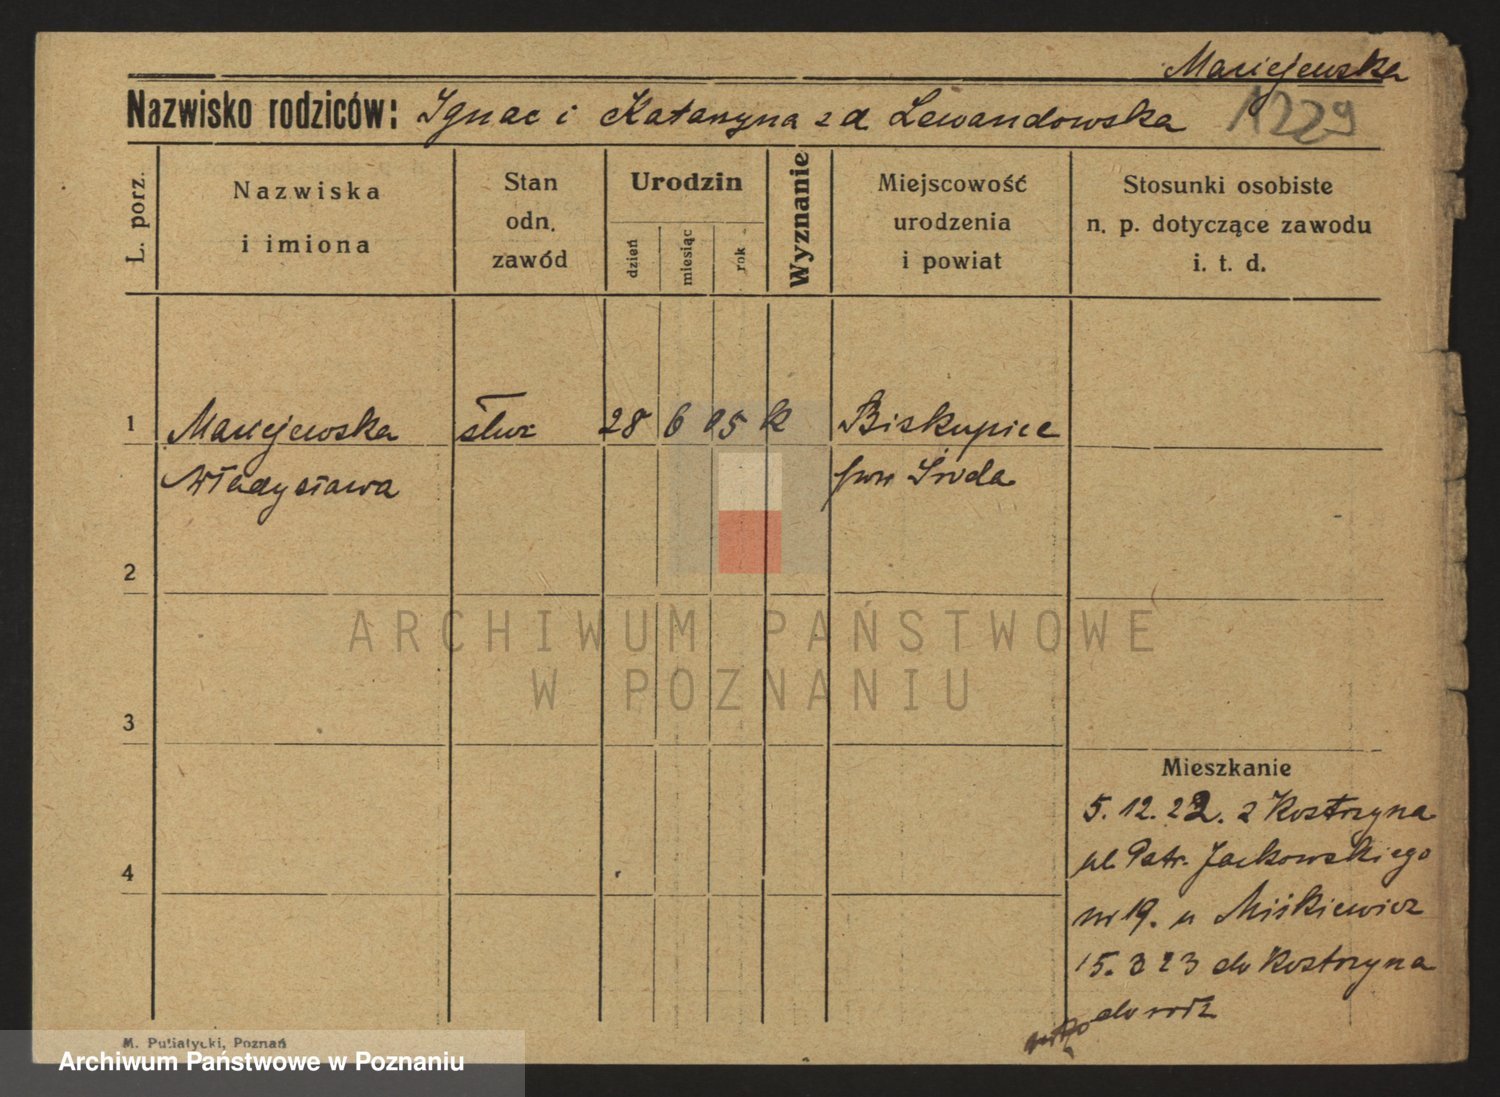 Maciejewska
Nazwisko rodziców: Ignac i Katarzyna z d Lewandowska
1229
L. porz.
Nazwiska
i imiona
Stan
odn.
zawód
Urodzin
dzień
miesiąc
rok
Wyznanie
Miejscowość
urodzenia
i powiat
Stosunki osobiste
n. p. dotyczące zawodu
i. t. d.
1 Maciejewska służ 28 6 05 k Biskupice
Władysława pow Środa
2
ARCHIWUM PAŃSTWOWE
W POZNANIU
3
Mieszkanie
5. 12. 22. z Kostrzyna
4
ul. Patr. Jackowskiego
nr 19. u Miśkiewicz
15. 3 23 do Kostrzyna
do rodz
M. Putiatycki, Poznań
Archiwum Państwowe w Poznaniu